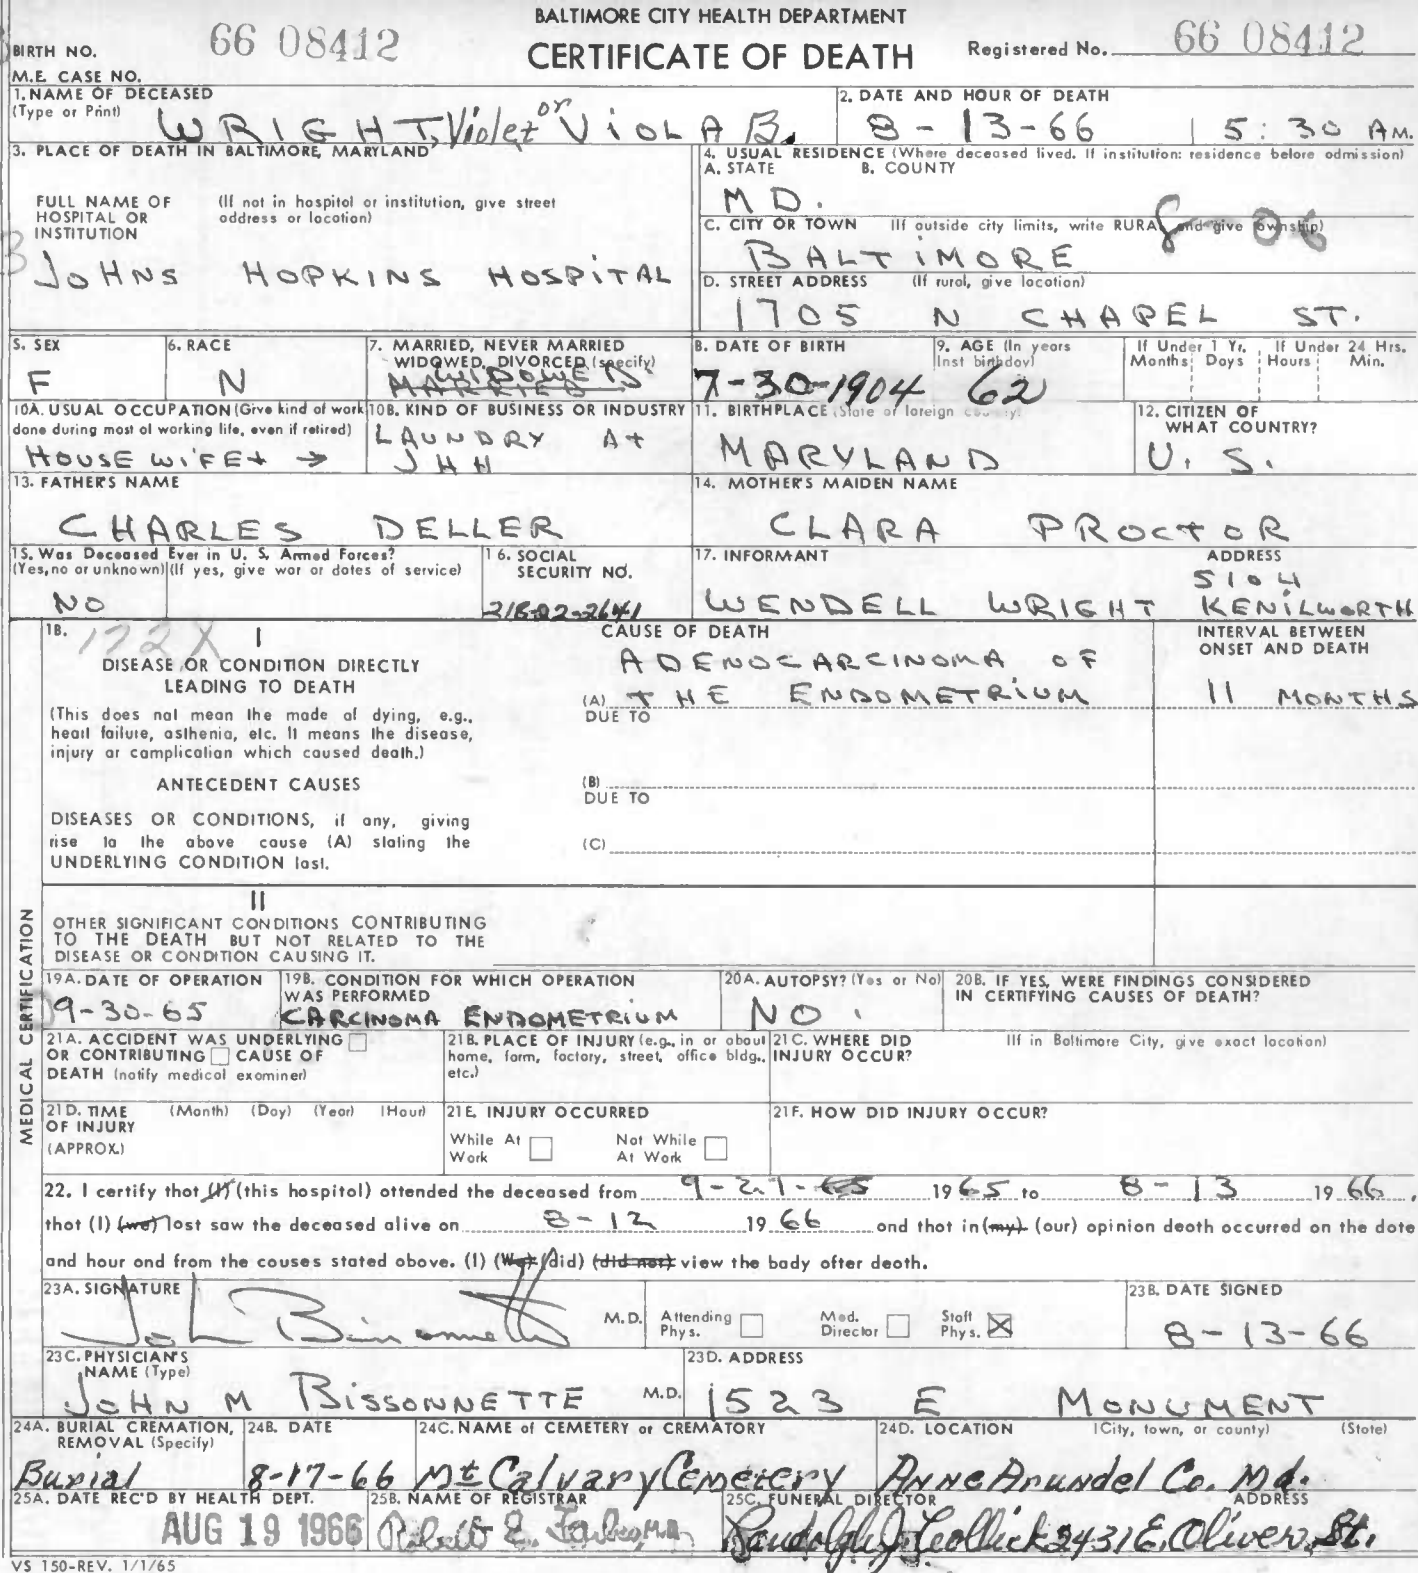 BALTIMORE CITY HEALTH DEPARTMENT
BIRTH NO. 66 08412 CERTIFICATE OF DEATH Registered No. 66 08412
M.E. CASE NO.
1. NAME OF DECEASED (Type or Print) WRIGHT, Violet or VIOLA B.
2. DATE AND HOUR OF DEATH 8-13-66 5:30 AM.
3. PLACE OF DEATH IN BALTIMORE, MARYLAND
FULL NAME OF HOSPITAL OR INSTITUTION (If not in hospital or institution, give street address or location)
JOHNS HOPKINS HOSPITAL
4. USUAL RESIDENCE (Where deceased lived. If institution: residence before admission)
A. STATE B. COUNTY
MD.
C. CITY OR TOWN (If outside city limits, write RURAL and give township)
BALTIMORE
D. STREET ADDRESS (If rural, give location)
1705 N CHAPEL ST.
5. SEX F
6. RACE N
7. MARRIED, NEVER MARRIED WIDOWED, DIVORCED (specify) WIDOWED MARRIED
8. DATE OF BIRTH 7-30-1904
9. AGE (In years last birthday) 62
If Under 1 Yr. Months Days If Under 24 Hrs. Hours Min.
10A. USUAL OCCUPATION (Give kind of work done during most of working life, even if retired) HOUSE WIFE + →
10B. KIND OF BUSINESS OR INDUSTRY LAUNDRY At JHH
11. BIRTHPLACE (State or foreign country) MARYLAND
12. CITIZEN OF WHAT COUNTRY? U. S.
13. FATHER'S NAME CHARLES DELLER
14. MOTHER'S MAIDEN NAME CLARA PROCTOR
15. Was Deceased Ever in U. S. Armed Forces? (Yes, no or unknown) (If yes, give war or dates of service) NO
16. SOCIAL SECURITY NO. 218-22-2641
17. INFORMANT ADDRESS
WENDELL WRIGHT 5104 KENILWORTH
18. 172X I
DISEASE OR CONDITION DIRECTLY LEADING TO DEATH
(This does not mean the mode of dying, e.g., heart failure, asthenia, etc. It means the disease, injury or complication which caused death.)
ANTECEDENT CAUSES
DISEASES OR CONDITIONS, if any, giving rise to the above cause (A) stating the UNDERLYING CONDITION last.
CAUSE OF DEATH
(A) ADENOCARCINOMA OF THE ENDOMETRIUM
DUE TO
(B)
DUE TO
(C)
INTERVAL BETWEEN ONSET AND DEATH
11 MONTHS
MEDICAL CERTIFICATION
II
OTHER SIGNIFICANT CONDITIONS CONTRIBUTING TO THE DEATH BUT NOT RELATED TO THE DISEASE OR CONDITION CAUSING IT.
19A. DATE OF OPERATION 9-30-65
19B. CONDITION FOR WHICH OPERATION WAS PERFORMED CARCINOMA ENDOMETRIUM
20A. AUTOPSY? (Yes or No) NO.
20B. IF YES, WERE FINDINGS CONSIDERED IN CERTIFYING CAUSES OF DEATH?
21A. ACCIDENT WAS UNDERLYING OR CONTRIBUTING CAUSE OF DEATH (notify medical examiner)
21B. PLACE OF INJURY (e.g., in or about home, farm, factory, street, office bldg., etc.)
21C. WHERE DID INJURY OCCUR? (If in Baltimore City, give exact location)
21D. TIME OF INJURY (APPROX.) (Month) (Day) (Year) (Hour)
21E. INJURY OCCURRED While At Work Not While At Work
21F. HOW DID INJURY OCCUR?
22. I certify that (I) (this hospital) attended the deceased from 9-29-65 1965 to 8-13 1966,
that (I) (we) last saw the deceased alive on 8-12 1966 and that in (my) (our) opinion death occurred on the date
and hour and from the causes stated above. (I) (We) (did) (did not) view the body after death.
23A. SIGNATURE John Bissonnette M.D. Attending Phys. Med. Director Staff Phys. X
23B. DATE SIGNED 8-13-66
23C. PHYSICIAN'S NAME (Type) JOHN M BISSONNETTE M.D.
23D. ADDRESS 1523 E MONUMENT
24A. BURIAL CREMATION, REMOVAL (Specify) Burial
24B. DATE 8-17-66
24C. NAME of CEMETERY or CREMATORY Mt Calvary Cemetery
24D. LOCATION (City, town, or county) (State) Anne Arundel Co. Md.
25A. DATE REC'D BY HEALTH DEPT. AUG 19 1966
25B. NAME OF REGISTRAR Robert E. Farber, M.D.
25C. FUNERAL DIRECTOR ADDRESS
Randolph J. 2431 E. Oliver St.
VS 150-REV. 1/1/65